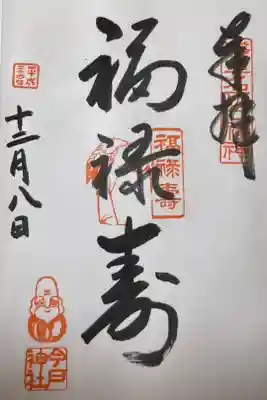 奉拝
福禄寿
福禄壽
十二月八日
今戸神社